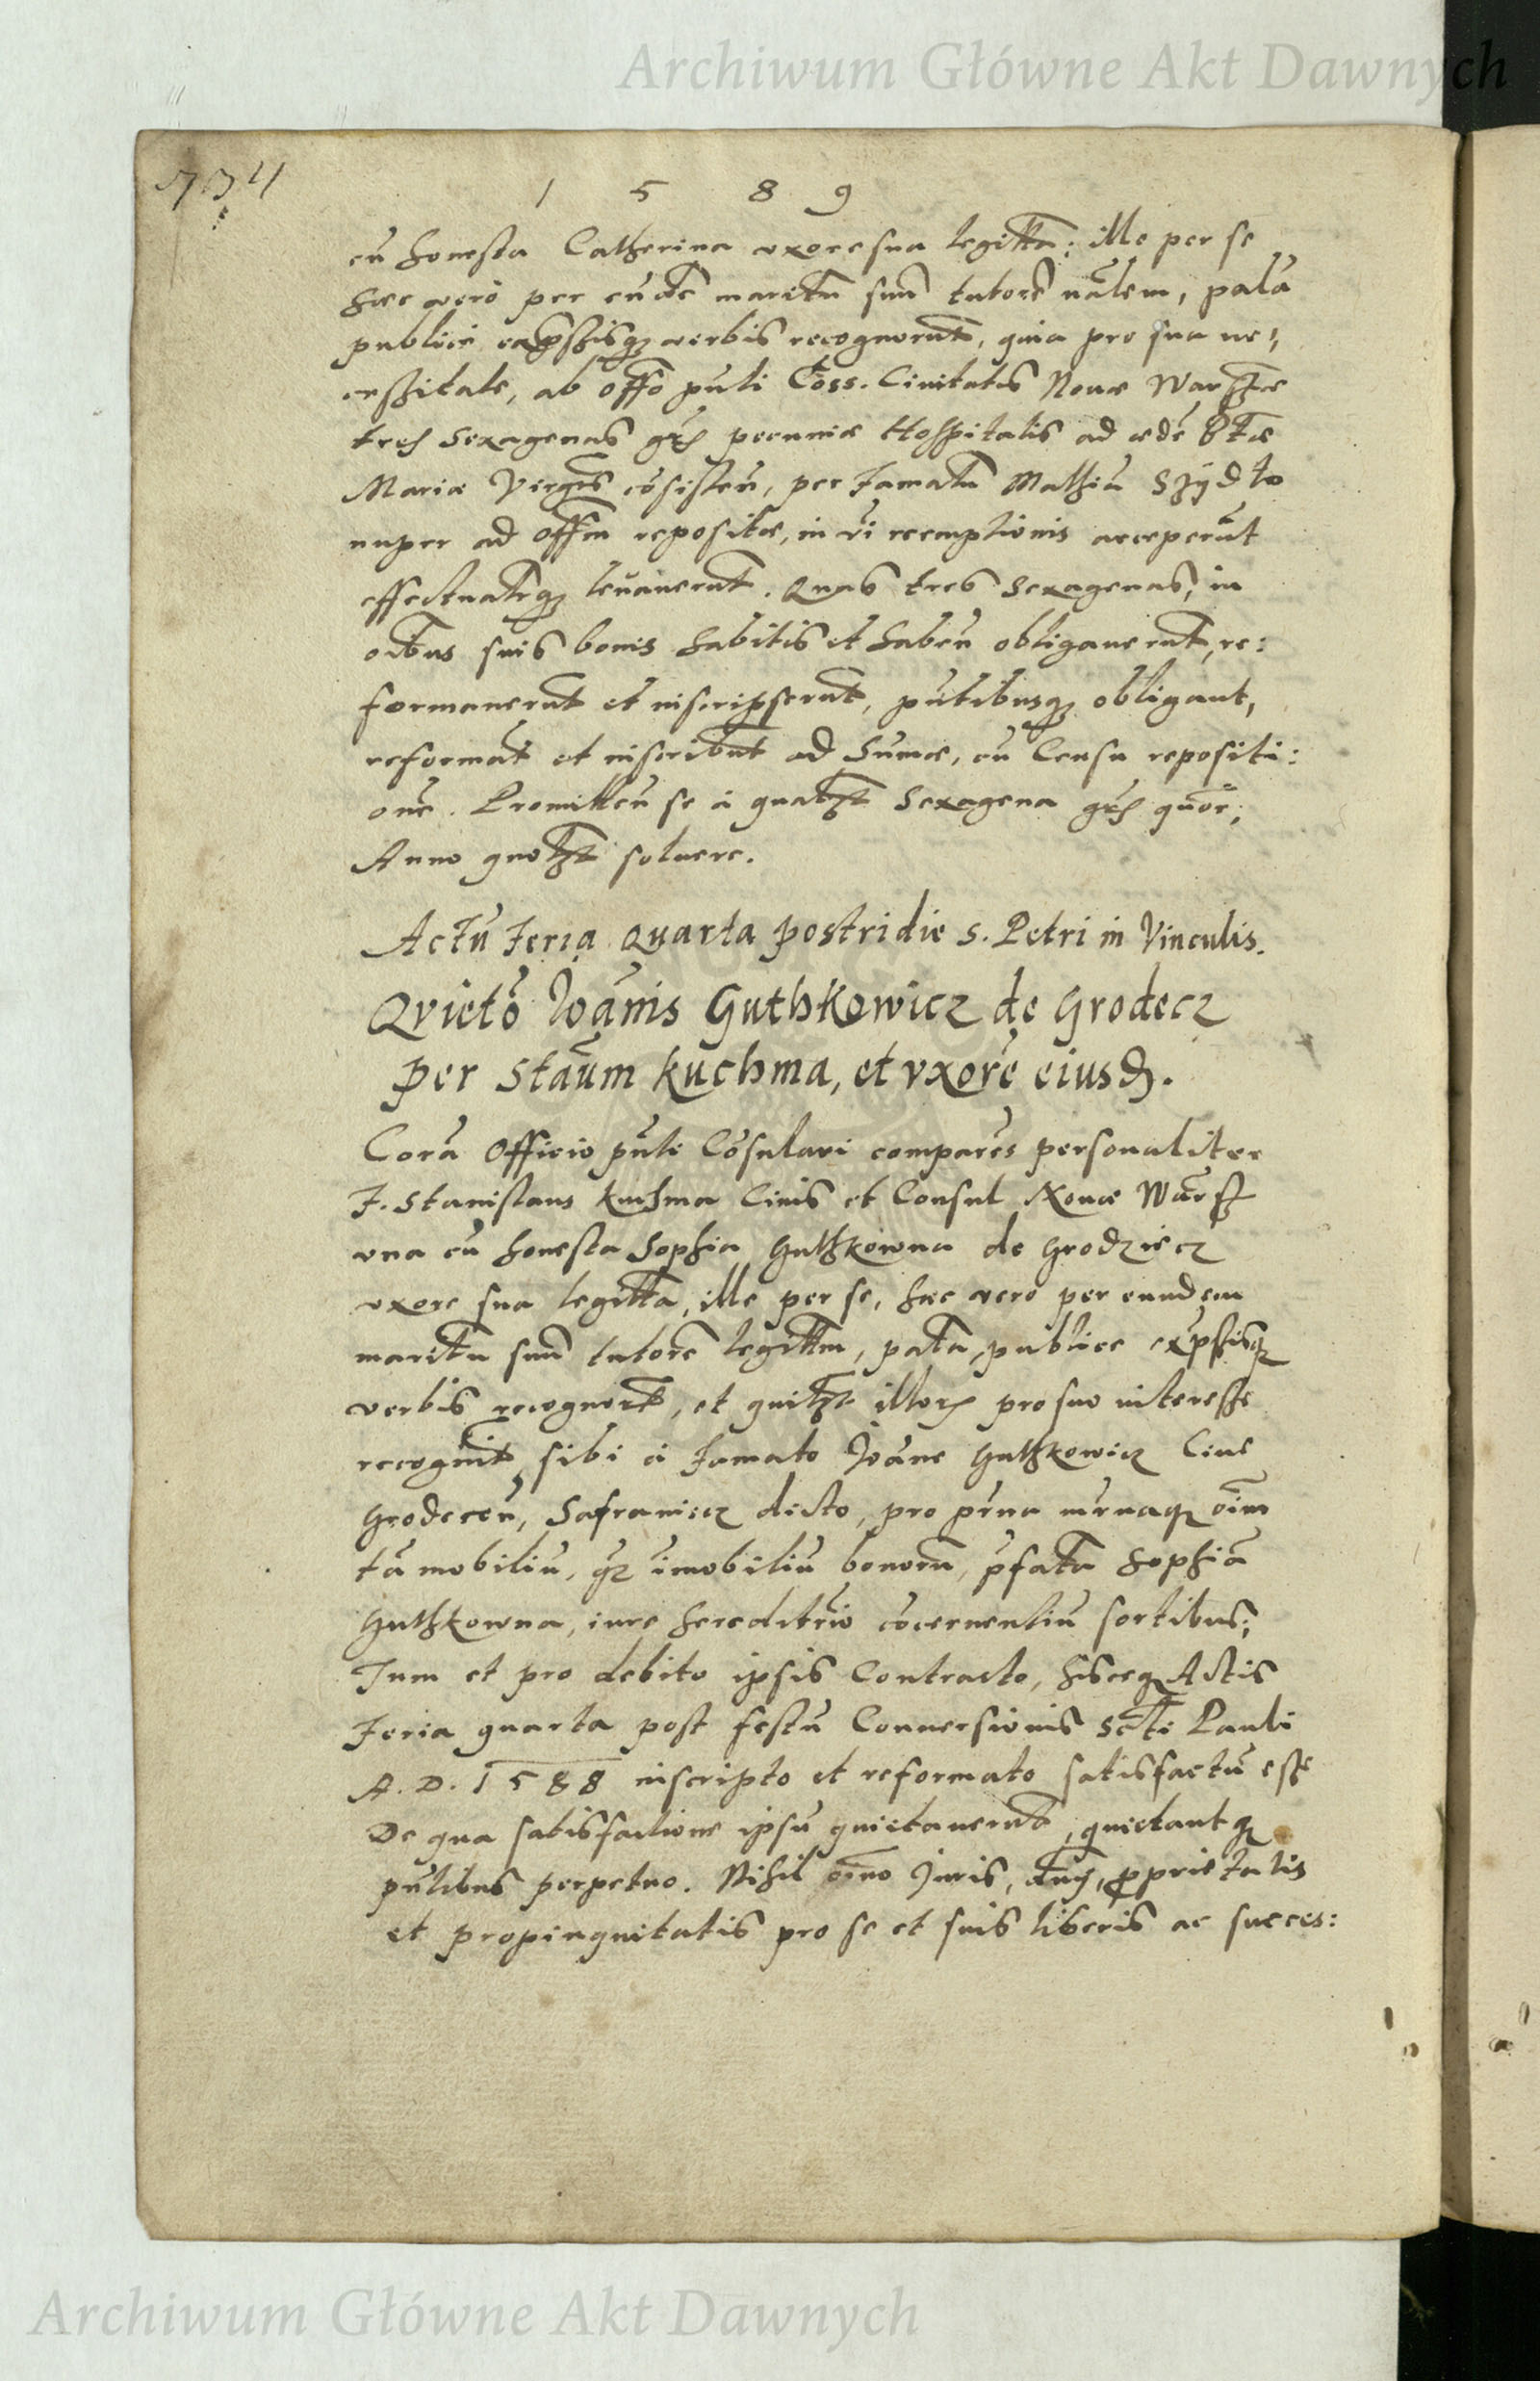 Archiwum Główne Akt Dawnych
1 5 8 9
cū honesta Catherina uxore sua legittā: ille per se
haec verò per eundē maritū suū tutorē nālem, palā
publicè exp̄ssisq3 verbis recognorūt, quia pro sua ne:
cessitate, ab offō pn̄ti Cōss. Civitatis Novae Warssae
tres Sexagenas grs pecuniae Hospitalis ad aedē Btae
Mariae Virgīs cōsisteñ, per Famatū Mathiā
nuper ad offm repositae, in vī reemptionis acceperūt
effectuatq3 levaverūt. Quas tres Sexagenas, in
oībus suis bonis habitis et habeñ obligaverūt, re:
formaverūt et inscripserūt, pn̄tibusq3 obligant,
reformāt et inscribūt ad Sumae, cū Censu repositi:
onē. Promitteñ se à qualibet Sexagena grs quor;
Anno quolibet solvere.
Actū Feria Quarta postridie S. Petri in Vinculis.
Qvietō Ioānis Guthkowicz de Grodecz
per Staūm Kuchma, et vxorē eiusd.
Corā Officio pn̄ti Cōsulari comparēs personaliter
F. Stanislaus Kuchma Civis et Consul Novae Warss
una cū honesta Sophia Guthkowna de Grodziecz
uxore sua legittā, ille per se, haec vero per eundem
maritū suū tutorē legittm, palā, publice exp̄ssisq3
verbis recognorūt, et quilibet illorū pro suo interesse
recognit, sibi à Famato Ioāne Guthkowicz Cive
Grodeceñ, Safraniecz dicto, pro prna mrnaq3 oīm
tā mobiliū, q3 imobiliū bonorū, p̄fatā Sophiā
Guthkowna, iure hereditrio cōcernentiū sortibus;
Tum et pro debito ipsis Contracto, hisceq3 Actis
Feria quarta post festū Conversionis Scti Pauli
A. D. 1588 inscripto et reformato satisfactū esse
De qua satisfactione ipsū quietaverūt, quietantq3
pn̄tibus perpetuo. Nihil oīno Iuris, proprietatis
et propinquitatis pro se et suis liberis ac succes:
Archiwum Główne Akt Dawnych